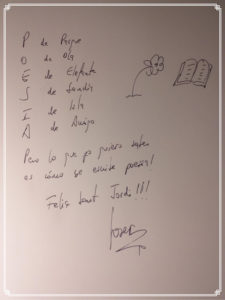 P de Parque
O de Ola
E de Elefante
S de Sandía
I de Isla
A de Amigo
Pero lo que yo quiero saber
es cómo se escribe poesía!
Feliz Sant Jordi!!!